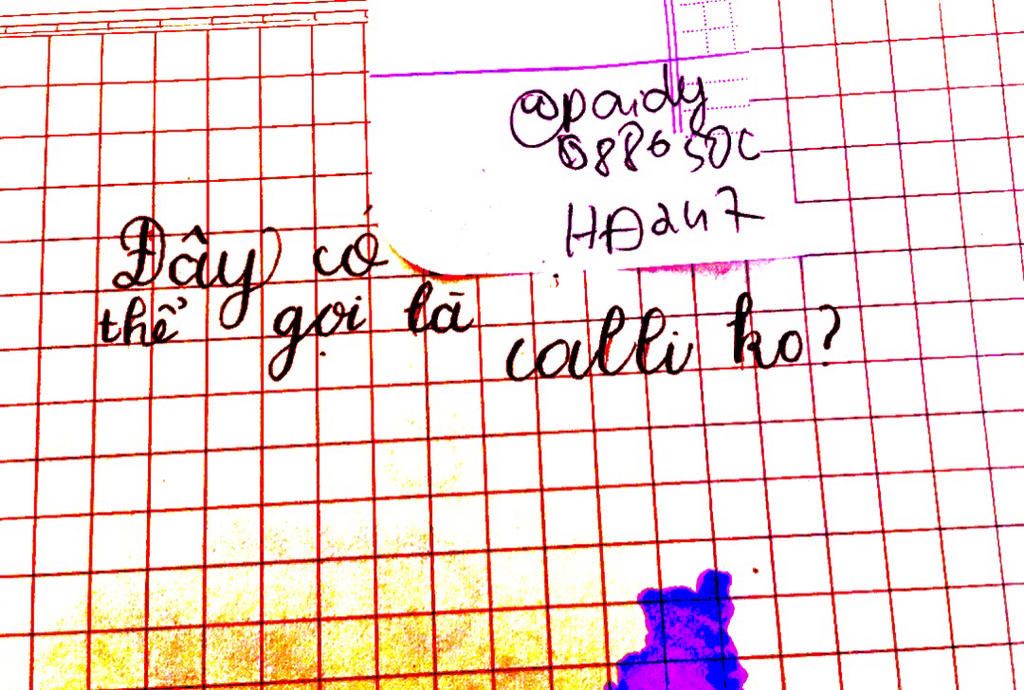 @paidy
088650c
HĐ247
Đây có
thể gọi là
calli ko?